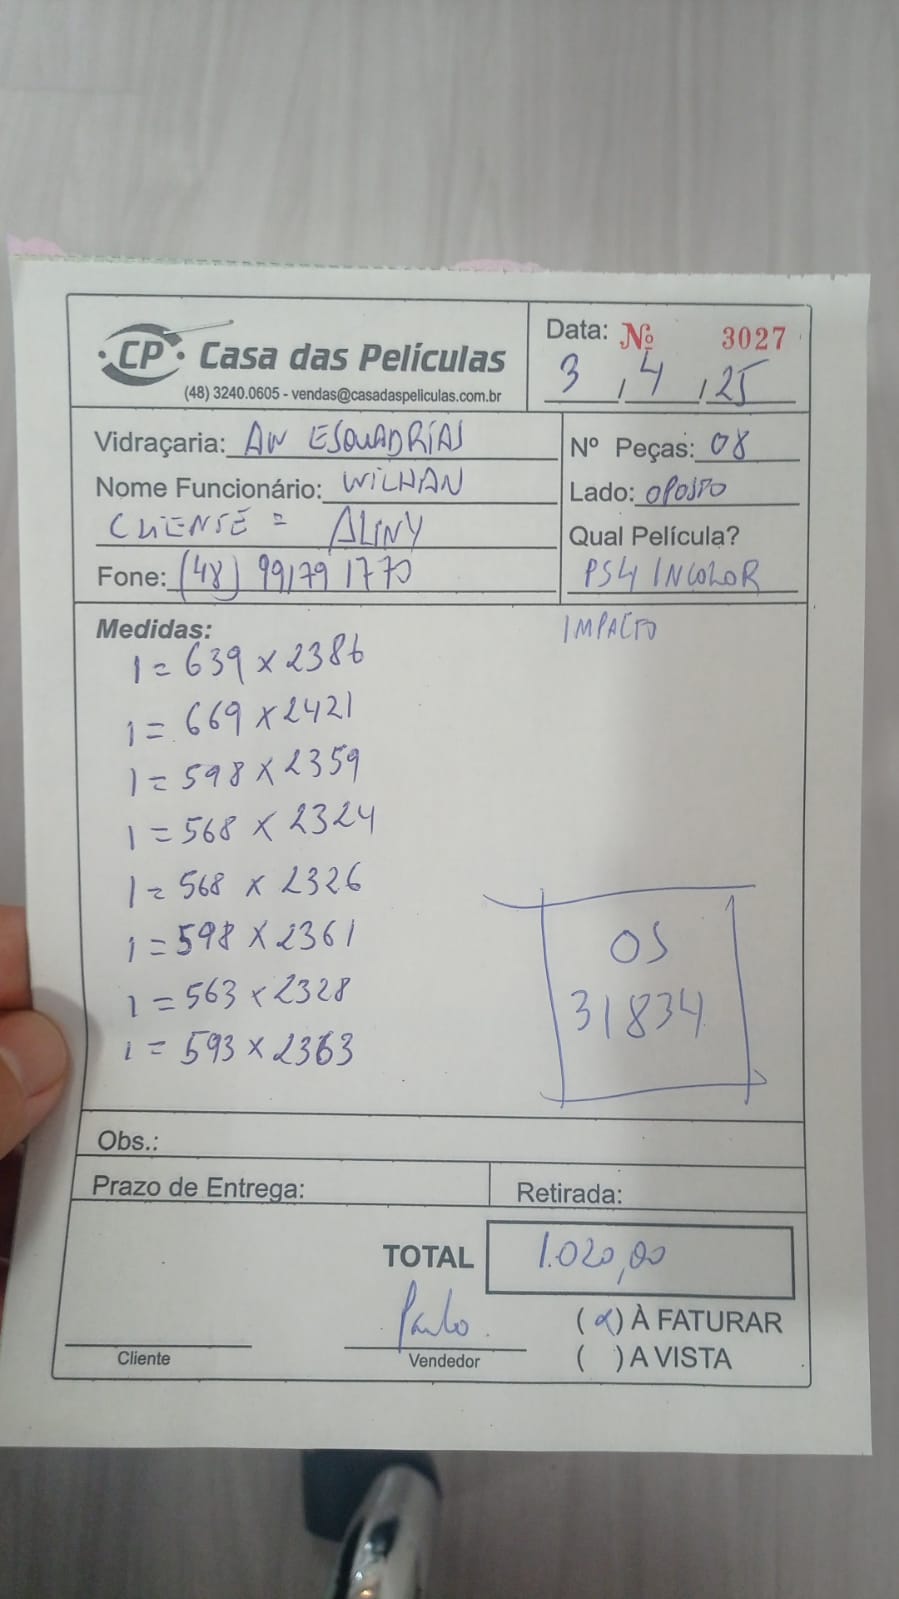 CP Casa das Películas
(48) 3240.0605 - vendas@casadaspeliculas.com.br
Data: Nº 3027
3, 4, 25
Vidraçaria: AW ESQUADRIAS
Nº Peças: 08
Nome Funcionário: WILHAN
Lado: OPOSTO
CLIENTE = ALINY
Qual Película?
Fone: (48) 99179 1770
PS4 INCOLOR
Medidas:
IMPACTO
1 = 639 x 2386
1 = 669 x 2421
1 = 598 x 2359
1 = 568 x 2324
1 = 568 x 2326
1 = 598 x 2361
1 = 563 x 2328
1 = 593 x 2363
OS
31834
Obs.:
Prazo de Entrega:
Retirada:
TOTAL 1.020,00
Paulo
(x) À FATURAR
Cliente
Vendedor
( ) A VISTA